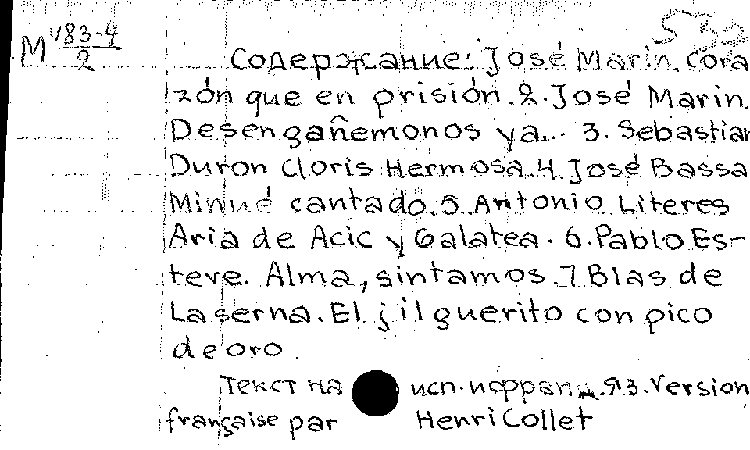 М 183-4/2
532
Содержание: José Marin. Cora
zón que en prisión. 2. José Marin.
Desengañemonos ya... 3. Sebastian
Duron Cloris Hermosa. 4. José Bassa
Minué cantado. 5. Antonio Literes
Aria de Acic y Galatea. 6. Pablo Es-
teve. Alma, sintamos. 7 Blas de
Laserna. El jilguerito con pico
de oro.
Текст на исп. и франц. яз. Version
française par Henri Collet